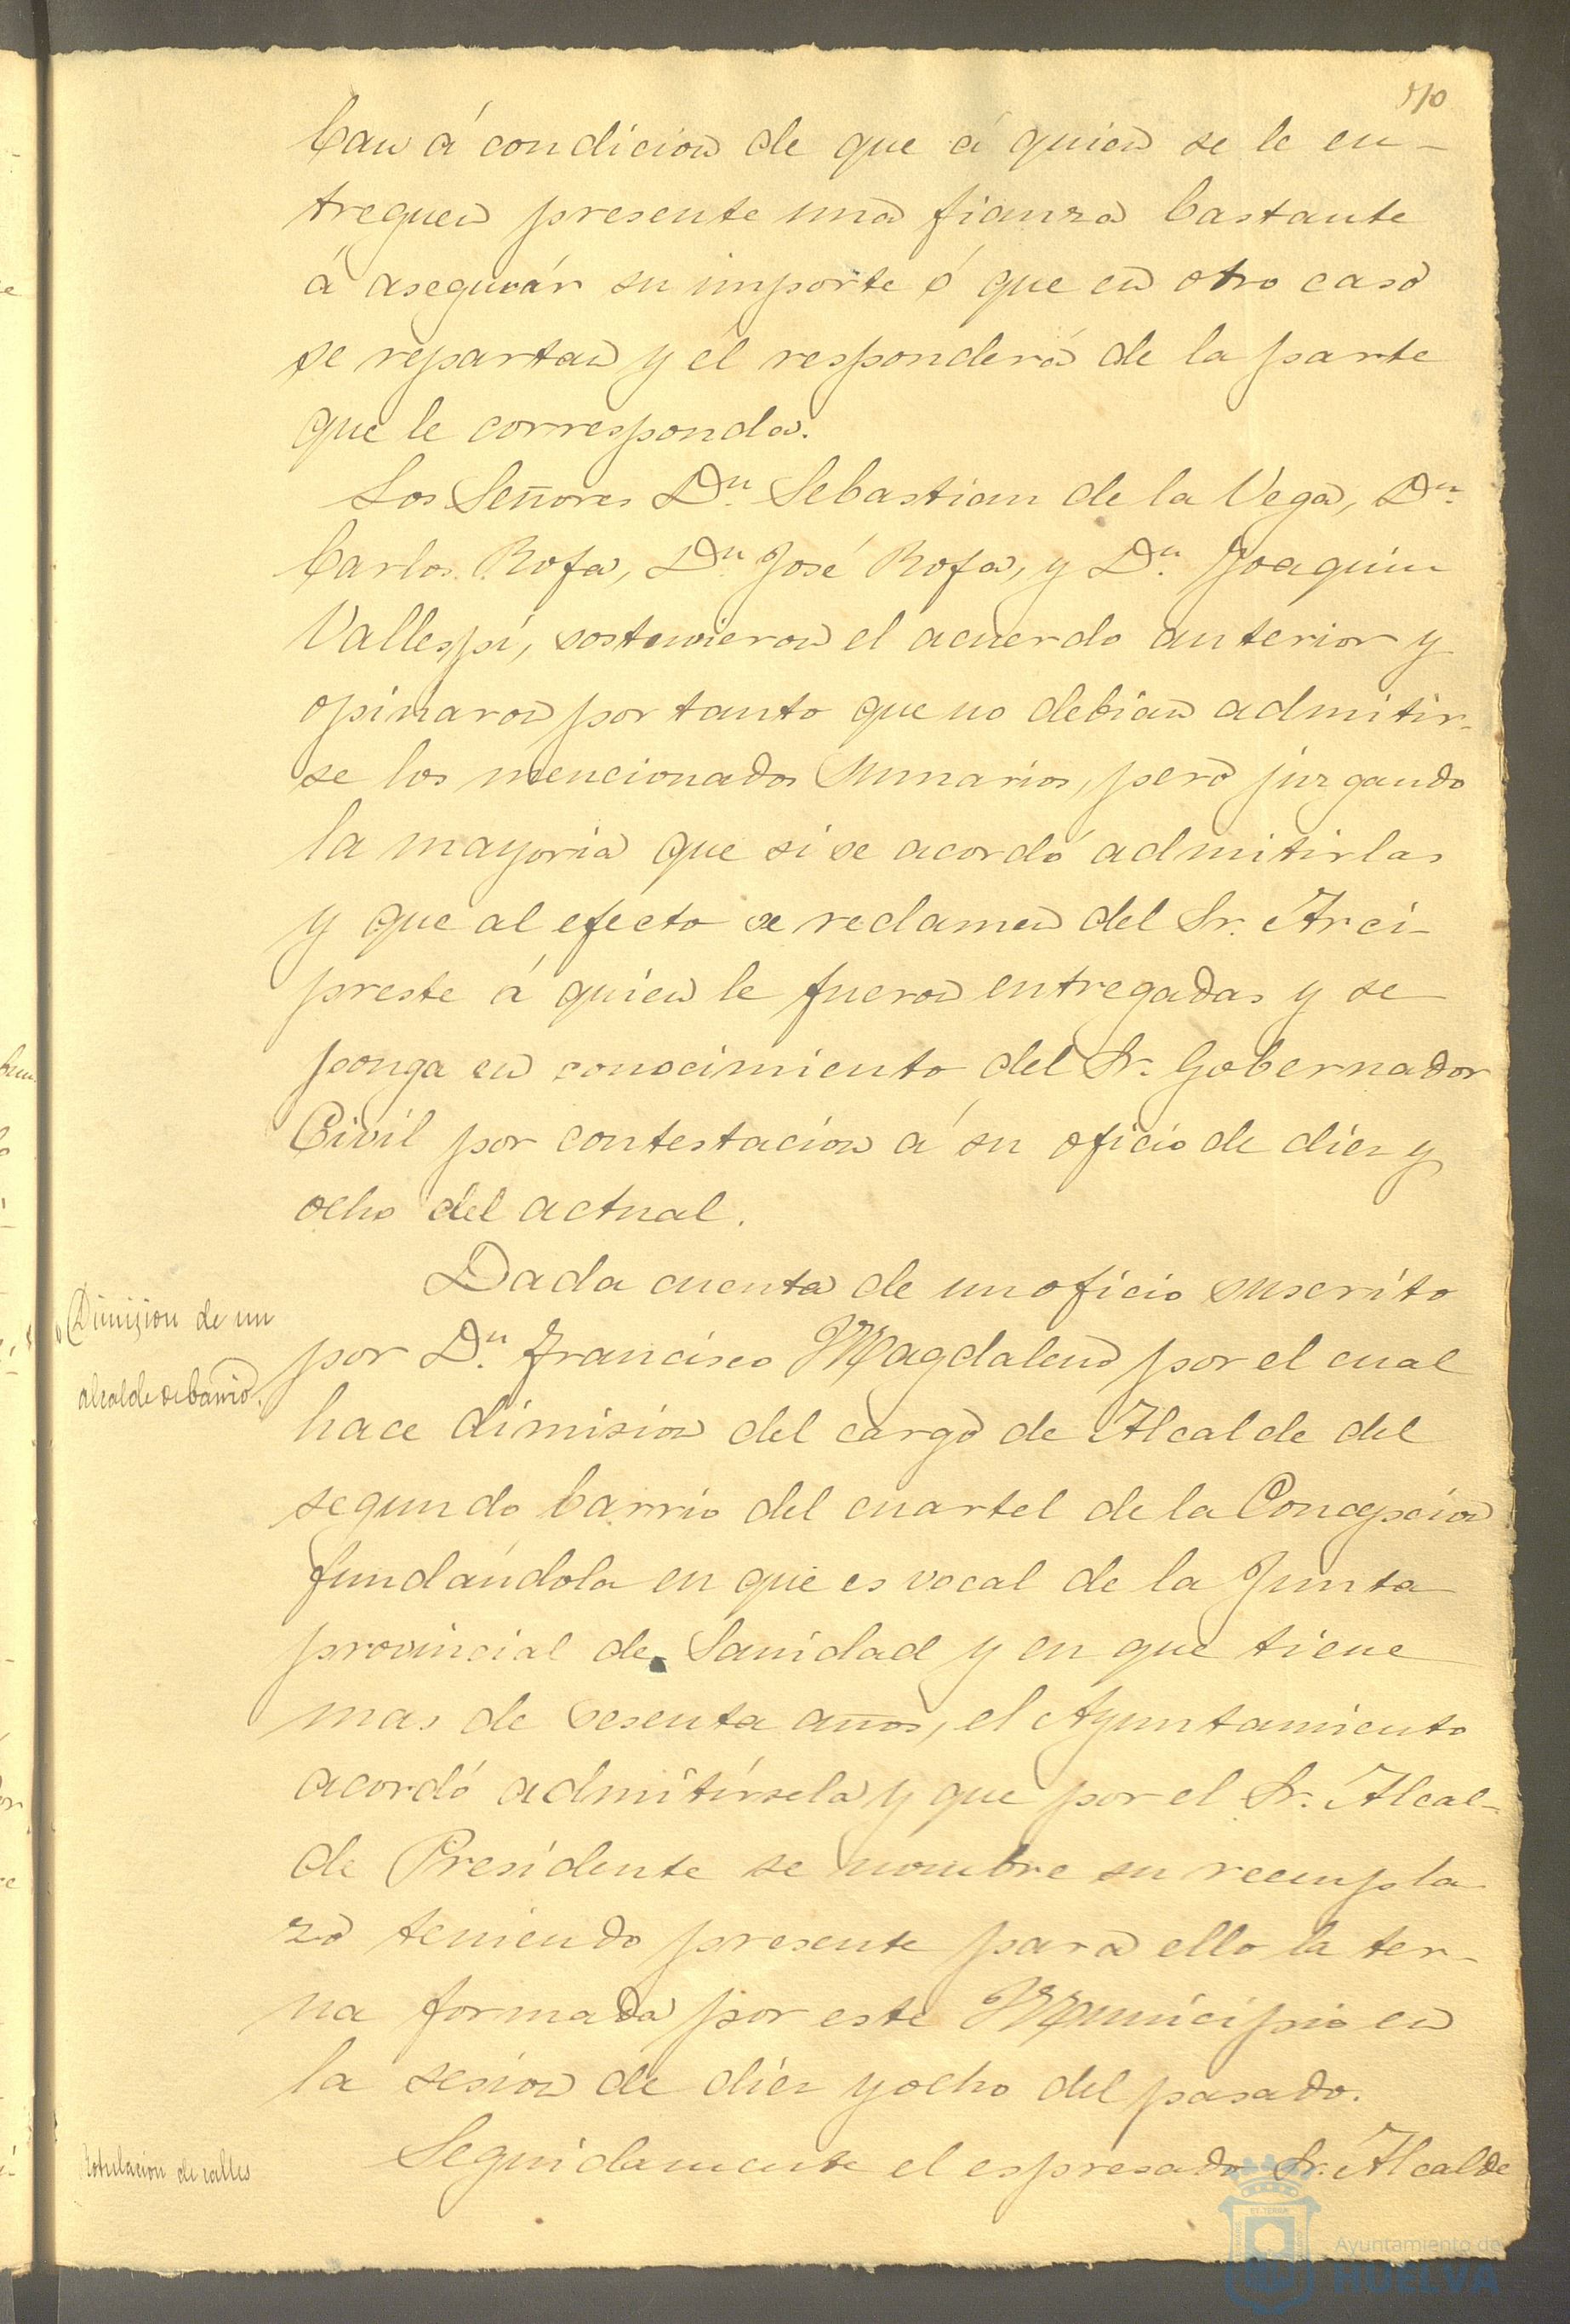 510
ban á condicion de que á quien se le en-
treguen presente una fianza bastante
á asegurár su importe ó que en otro caso
se repartan y él responderá de la parte
que le corresponda.
Los Señores Dn. Sebastian de la Vega, Dn.
Carlos Rofa, Dn José Rofa, y Dn. Joaquin
Vallespí, sostuvieron el acuerdo anterior y
opinaron por tanto que no debian admitir-
se los mencionados Sumarios, pero juzgando
la mayoria que si se acordó admitirlas
y que al efecto se reclamen del Sr. Arci-
preste á quien le fueron entregadas y se
ponga en conocimiento del Sr. Gobernador
Civil por contestacion á su oficio de diez y
ocho del actual.
Dimision de un
alcalde de barrio.
Dada cuenta de un oficio suscrito
por Dn. Francisco Magdalena por el cual
hace dimision del cargo de Alcalde del
segundo barrio del cuartel de la Concepcion
fundándola en que es vocal de la Junta
provincial de Sanidad y en que tiene
mas de sesenta años, el Ayuntamiento
acordó admitírsela y que por el Sr. Alcal-
de Presidente se nombre su reempla-
zo teniendo presente para ello la ter-
na formada por este Municipio en
la sesion de diez y ocho del pasado.
Rotulacion de calles
Seguidamente el espresado Sr. Alcalde
Ayuntamiento de
HUELVA